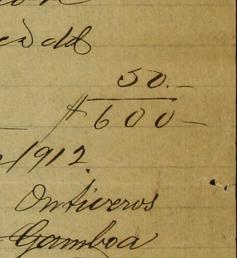 50.—
$600—
1912
Ontiveros
Gamboa